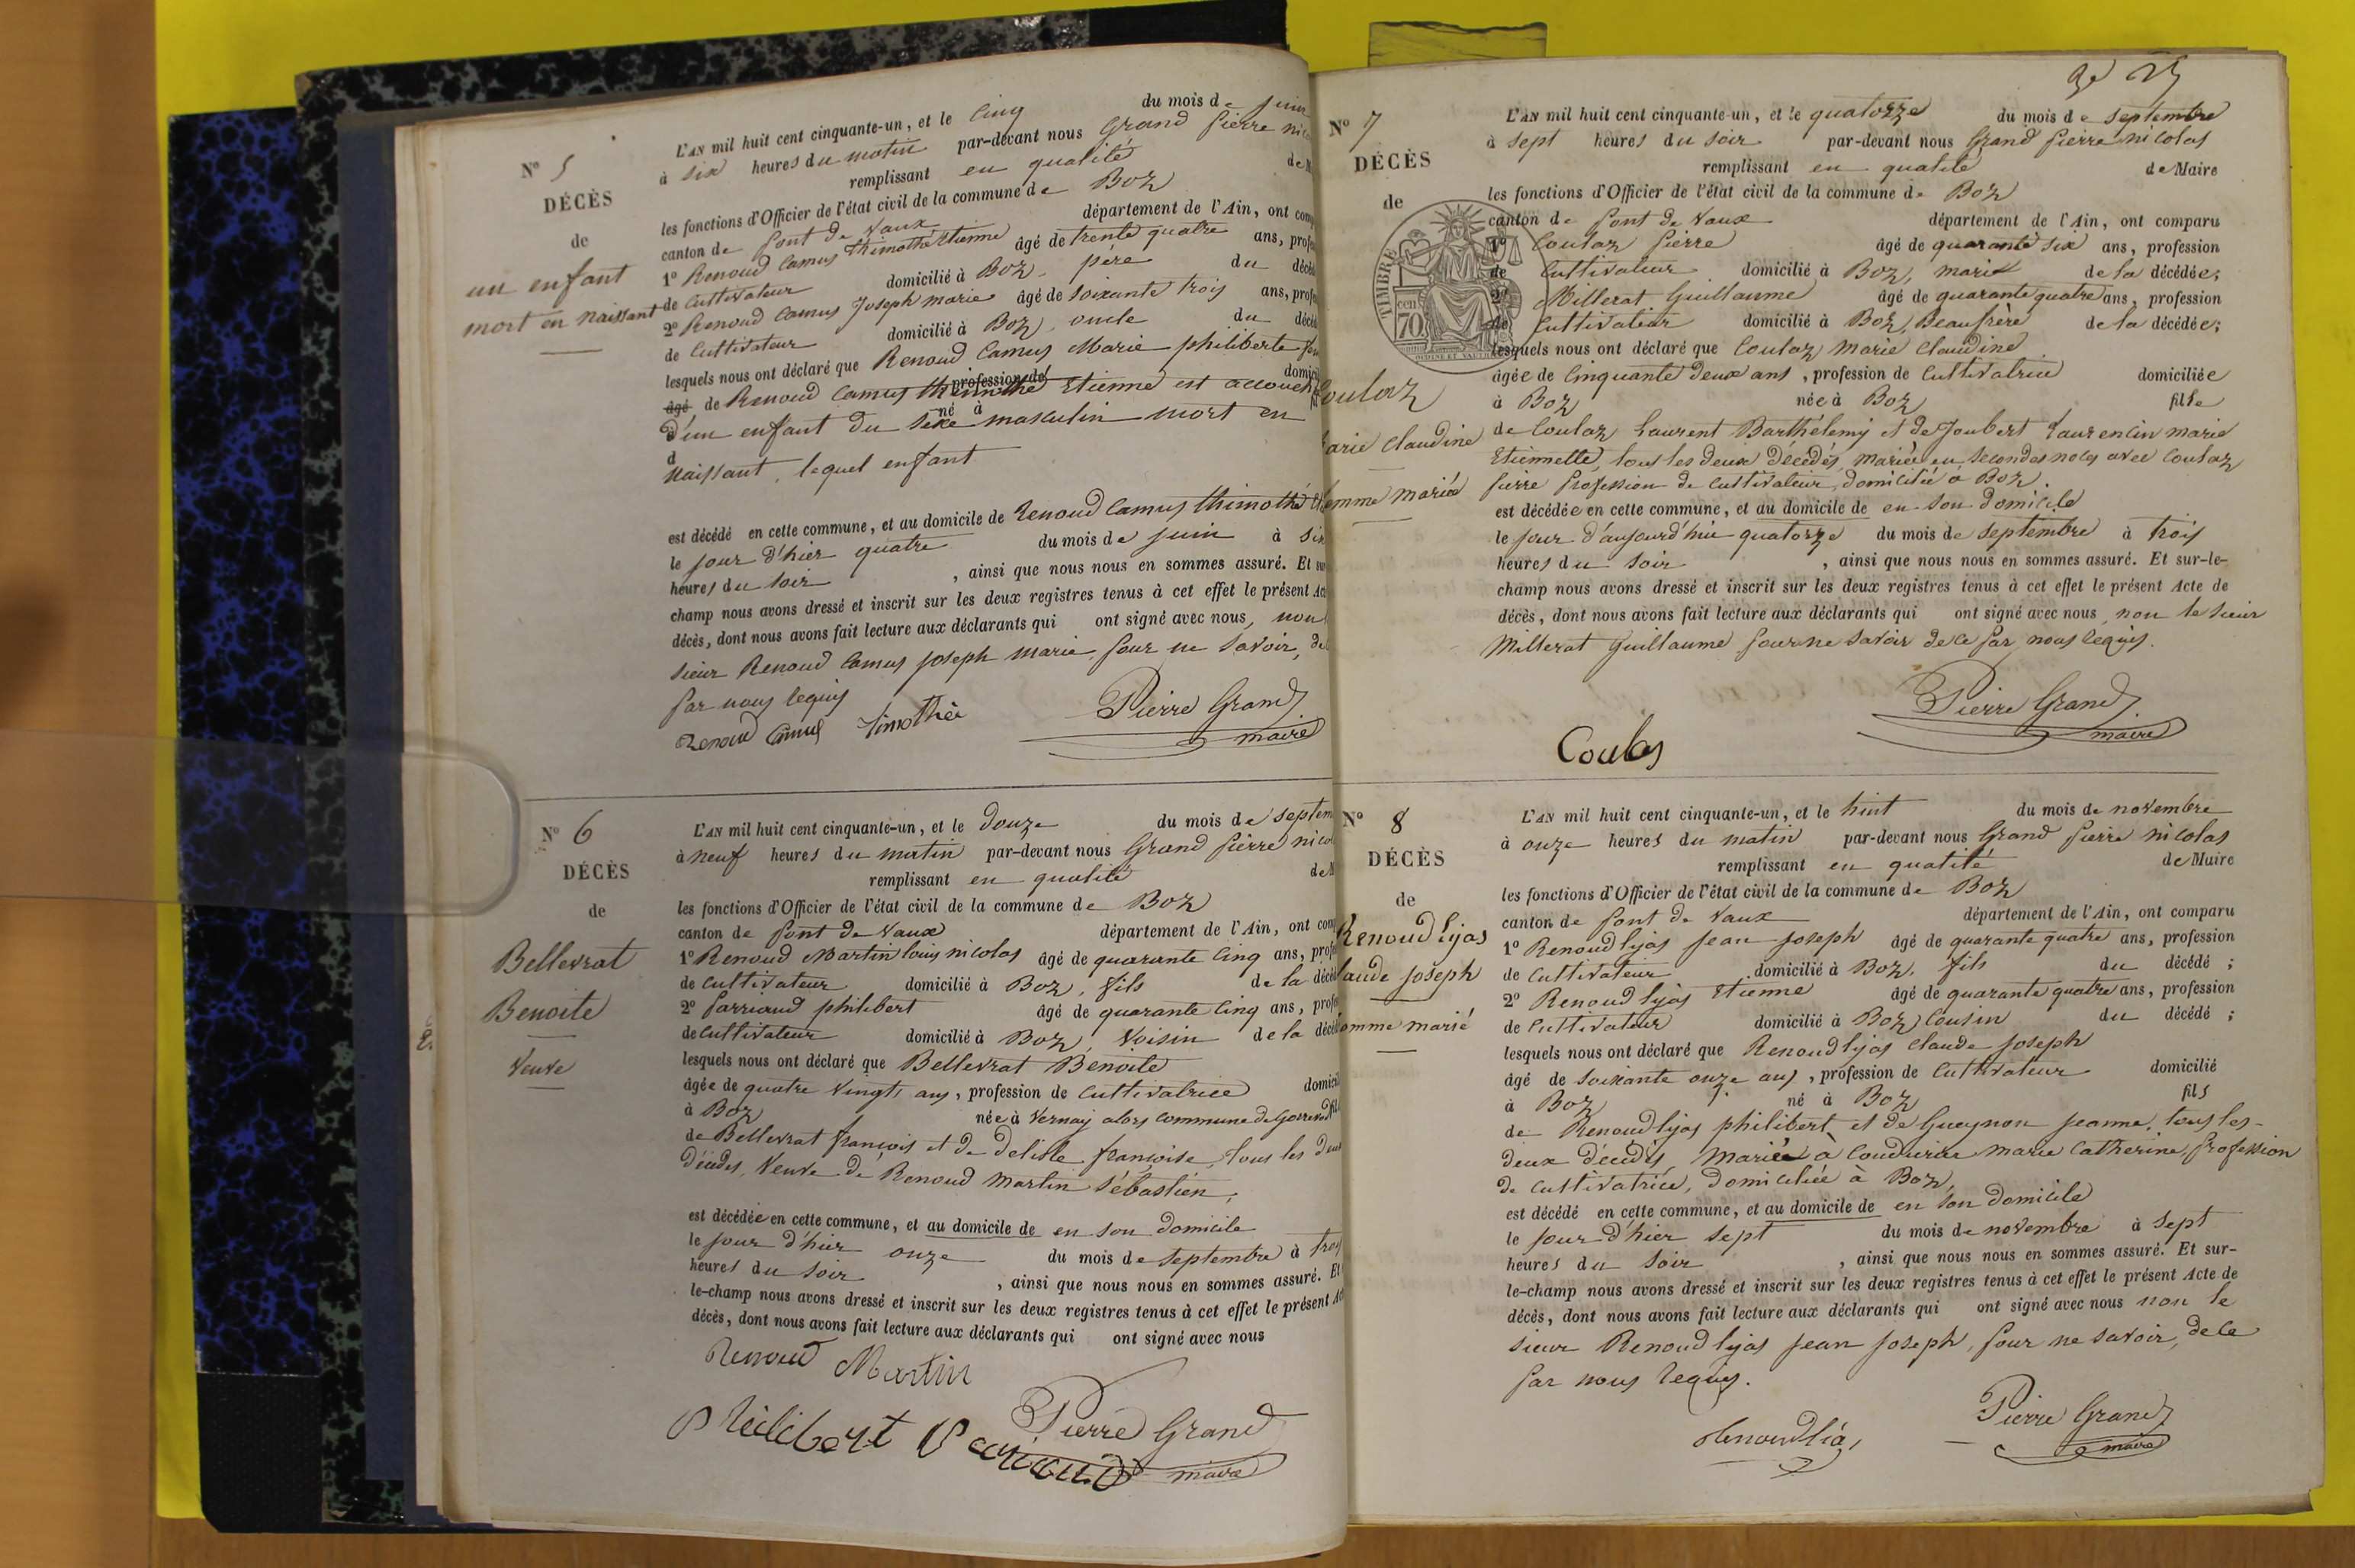 N° 5
DÉCÈS
de
un enfant
mort en naissant
L'AN mil huit cent cinquante-un, et le cinq du mois de juin
à six heures du matin par-devant nous Grand Pierre
remplissant en qualité
les fonctions d'Officier de l'état civil de la commune de Boz
canton de Pont de Vaux département de l'Ain, ont
1° Renoud Camus Thimothé Etienne âgé de trente quatre ans,
de cultivateur domicilié à Boz, père du
2° Renoud Camus Joseph marie âgé de soixante trois ans,
de cultivateur domicilié à Boz, oncle du
lesquels nous ont déclaré que Renoud Camus Marie philiberte
âgé de Renoud Camus thimothé Etienne est accouch
profession de
d'un enfant du sexe masculin mort en
né à
naissant, lequel enfant
est décédé en cette commune, et au domicile de Renoud Camus thimothé
le jour d'hier quatre du mois de juin à six
heures du soir, ainsi que nous nous en sommes assuré. Et
champ nous avons dressé et inscrit sur les deux registres tenus à cet effet le présent
décès, dont nous avons fait lecture aux déclarants qui ont signé avec nous, non
sieur Renoud Camus joseph marie, pour ne savoir, de
par nous requis
Renoud Camus Timothée Pierre Grand
maire
N° 6
DÉCÈS
de
Bellevrat
Benoite
Veuve
L'AN mil huit cent cinquante-un, et le douze du mois de septem
à neuf heures du matin par-devant nous Grand Pierre
remplissant en qualité
les fonctions d'Officier de l'état civil de la commune de Boz
canton de Pont de Vaux département de l'Ain, ont
1° Renoud Martin louis nicolas âgé de quarante cinq ans,
de cultivateur domicilié à Boz, fils de la
2° Parriaud philibert âgé de quarante cinq ans,
de cultivateur domicilié à Boz, Voisin de la
lesquels nous ont déclaré que Bellevrat Benoite
âgée de quatre vingts ans, profession de cultivatrice
à Boz née à Vernay alors commune de Gorrevod
de Bellevrat françois et de Delisle françoise, tous les deux
décédés, Veuve de Renoud Martin Sébastien,
est décédée en cette commune, et au domicile de en son domicile
le jour d'hier onze du mois de septembre à trois
heures du soir, ainsi que nous nous en sommes assuré. Et
le-champ nous avons dressé et inscrit sur les deux registres tenus à cet effet le présent
décès, dont nous avons fait lecture aux déclarants qui ont signé avec nous
Renoud Martin
Philibert Parriaud Pierre Grand
maire
N° 7
DÉCÈS
de
Coulaz
arie Claudine
emme mariée
TIMBRE
70
L'AN mil huit cent cinquante-un, et le quatorze du mois de septembre
à sept heures du soir par-devant nous Grand Pierre nicolas
remplissant en qualité de Maire
les fonctions d'Officier de l'état civil de la commune de Boz
canton de Pont de Vaux département de l'Ain, ont comparu
1° Coulaz Pierre âgé de quarante six ans, profession
de cultivateur domicilié à Boz, mari de la décédée;
2° Millerat Guillaume âgé de quarante quatre ans, profession
de cultivateur domicilié à Boz, Beaufrère de la décédée;
lesquels nous ont déclaré que Coulaz Marie Claudine
âgée de cinquante deux ans, profession de cultivatrice domiciliée
à Boz née à Boz fille
de Coulaz Laurent Barthélemy et de Joubert Laurencin marie
Etiennette, tous les deux décédés, mariée en secondes noces avec Coulaz
Pierre Profession de cultivateur, domicilié à Boz.
est décédée en cette commune, et au domicile de en son domicile
le jour d'aujourd'hui quatorze du mois de septembre à trois
heures du soir, ainsi que nous nous en sommes assuré. Et sur-le-
champ nous avons dressé et inscrit sur les deux registres tenus à cet effet le présent Acte de
décès, dont nous avons fait lecture aux déclarants qui ont signé avec nous, non le sieur
Millerat Guillaume pour ne savoir de ce par nous requis.
Pierre Grand
maire
Coulas
N° 8
DÉCÈS
de
Renoud lyas
laude joseph
omme marié
L'AN mil huit cent cinquante-un, et le huit du mois de novembre
à onze heures du matin par-devant nous Grand Pierre nicolas
remplissant en qualité de Maire
les fonctions d'Officier de l'état civil de la commune de Boz
canton de Pont de Vaux département de l'Ain, ont comparu
1° Renoud lyas jean joseph âgé de quarante quatre ans, profession
de cultivateur domicilié à Boz, fils du décédé;
2° Renoud lyas Etienne âgé de quarante quatre ans, profession
de cultivateur domicilié à Boz, Cousin du décédé;
lesquels nous ont déclaré que Renoud lyas claude joseph
âgé de soixante onze ans, profession de cultivateur domicilié
à Boz né à Boz fils
de Renoud lyas philibert et de Gueynon jeanne, tous les
deux décédés, marié à Coudurier marie Catherine, profession
de cultivatrice, domiciliée à Boz,
est décédé en cette commune, et au domicile de en son domicile
le jour d'hier sept du mois de novembre à sept
heures du soir, ainsi que nous nous en sommes assuré. Et sur-
le-champ nous avons dressé et inscrit sur les deux registres tenus à cet effet le présent Acte de
décès, dont nous avons fait lecture aux déclarants qui ont signé avec nous non le
sieur Renoud lyas jean joseph, pour ne savoir, de ce
par nous requis.
Pierre Grand
maire